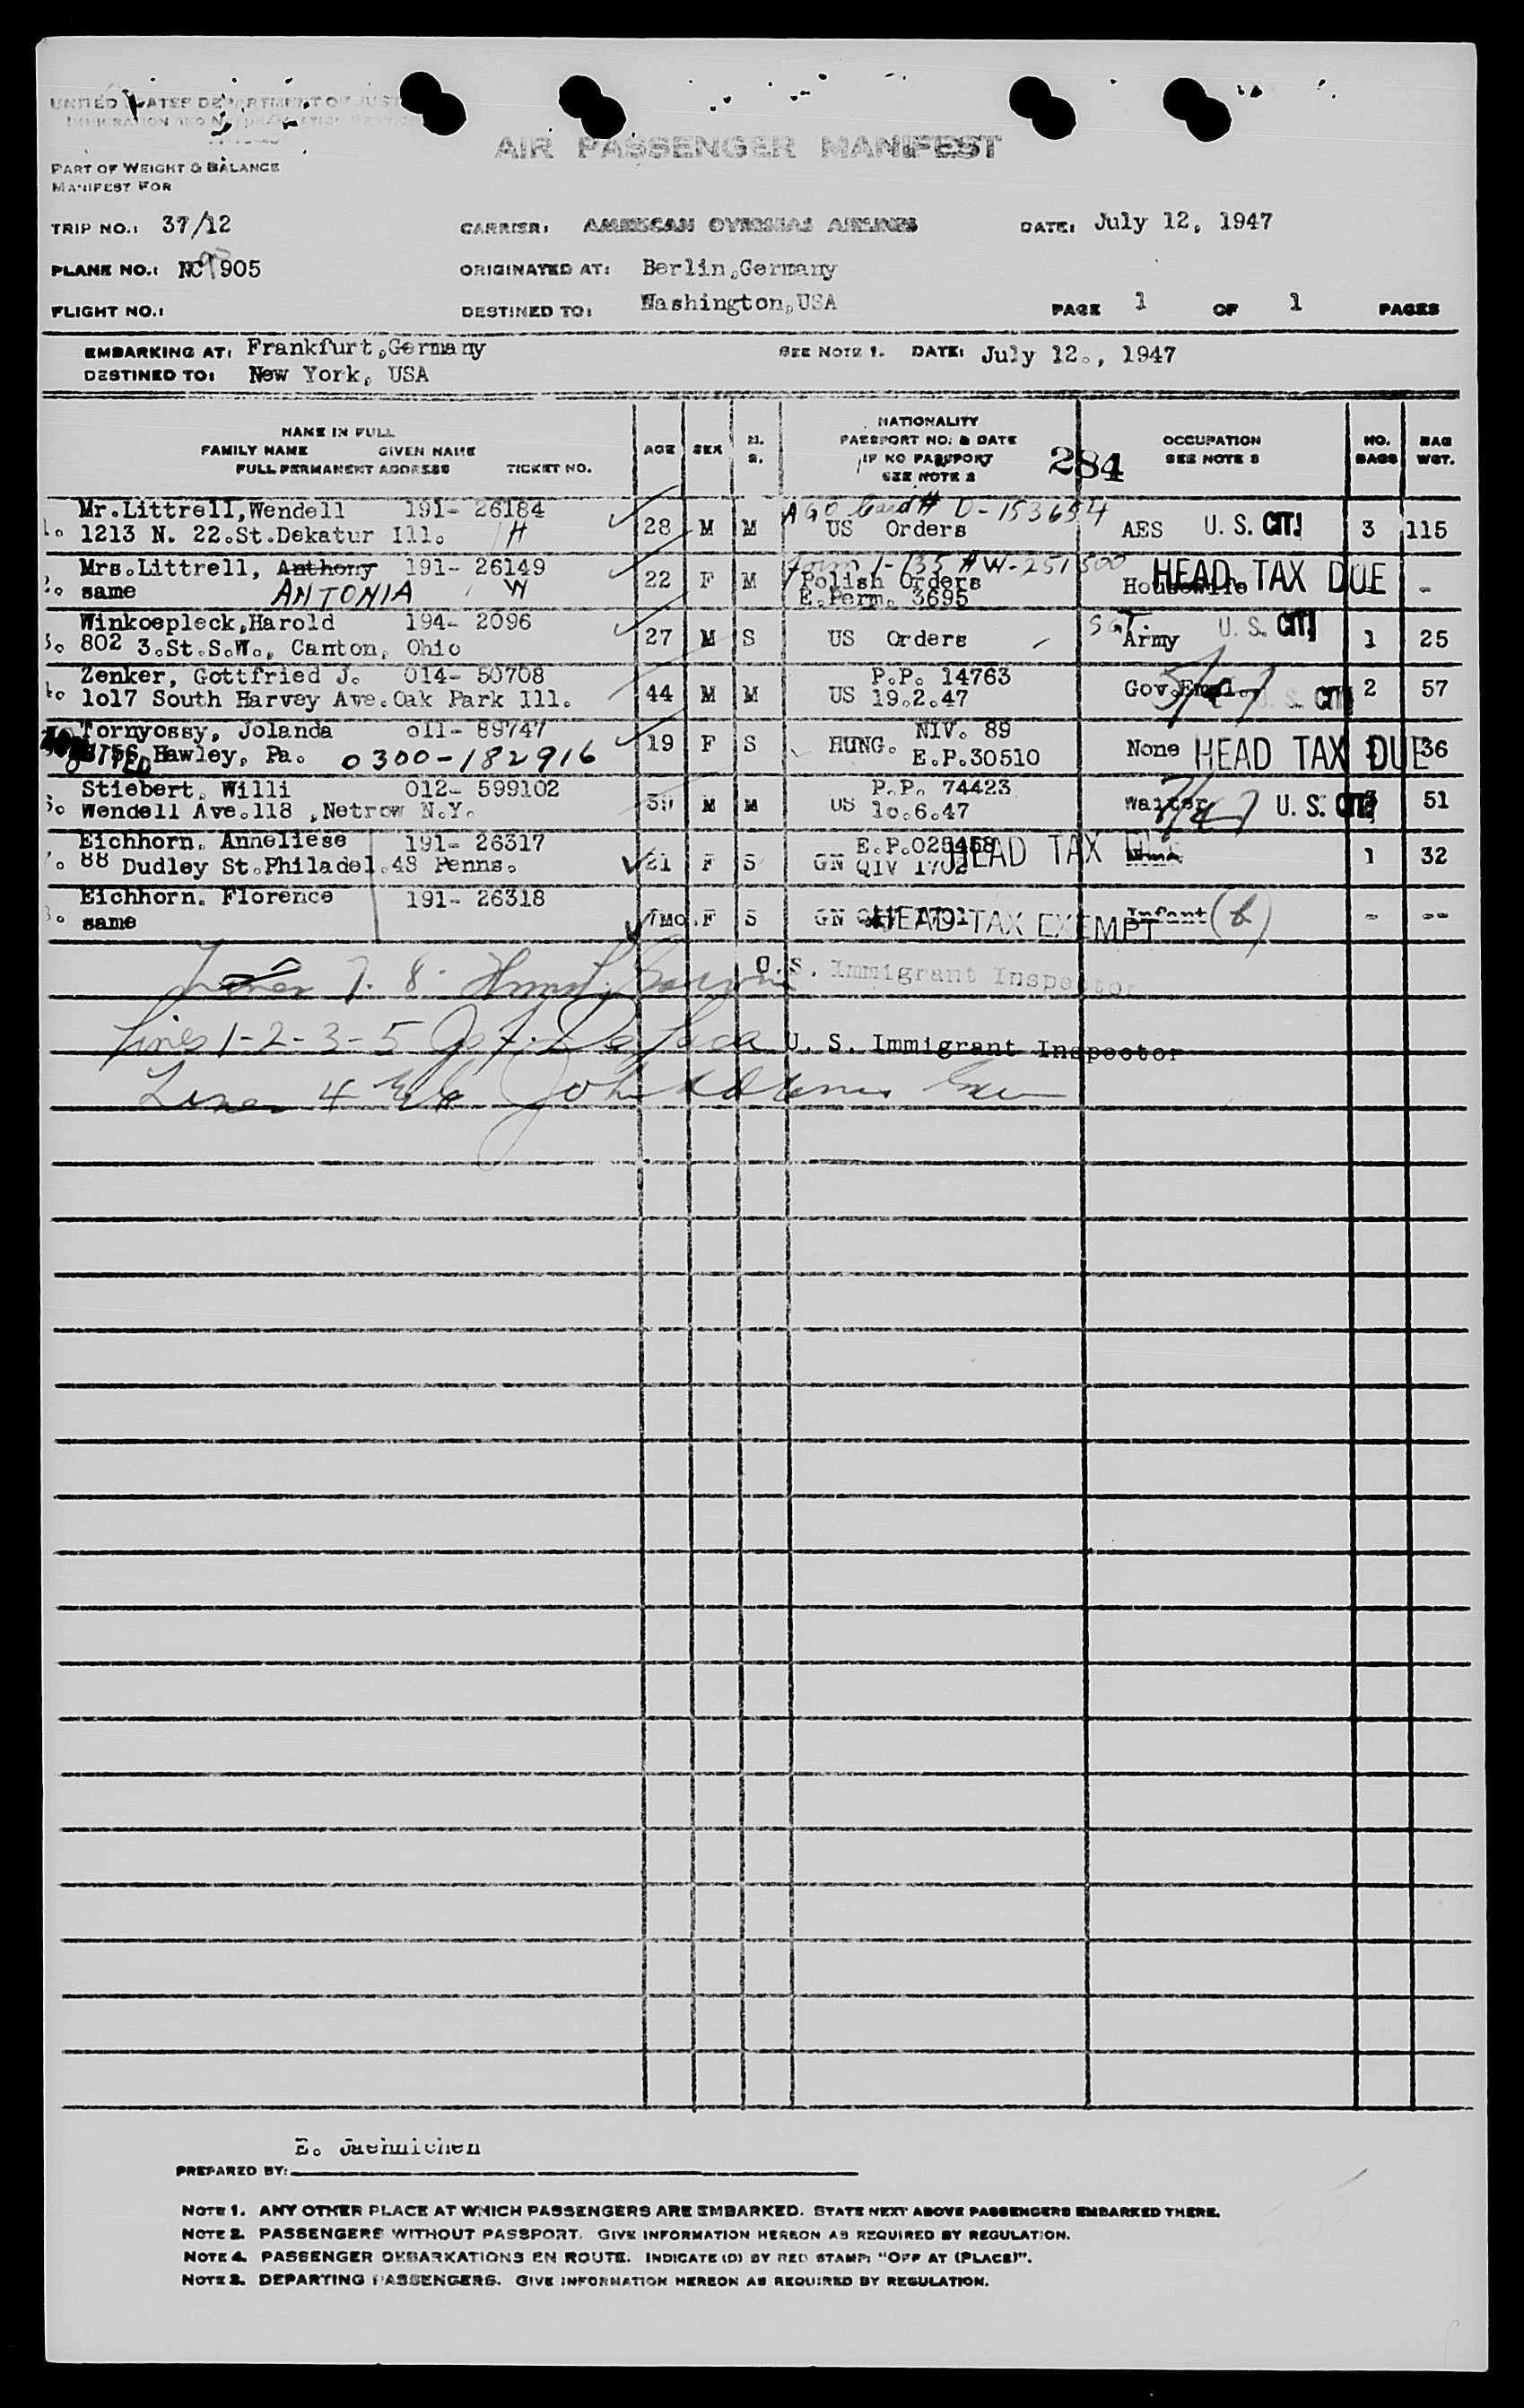 UNITED STATES DEPARTMENT OF JUST
IMMIGRATION AND NATURALIZATION SERVICE
AIR PASSENGER MANIFEST
PART OF WEIGHT & BALANCE
MANIFEST FOR
TRIP NO.: 37/12 CARRIER: AMERICAN OVERSEAS AIRLINES DATE: July 12, 1947
PLANE NO.: NC 90905 ORIGINATED AT: Berlin,Germany
FLIGHT NO.: DESTINED TO: Washington,USA PAGE 1 OF 1 PAGES
EMBARKING AT: Frankfurt,Germany SEE NOTE 1. DATE: July 12., 1947
DESTINED TO: New York, USA
NAME IN FULL
FAMILY NAME GIVEN NAME
FULL PERMANENT ADDRESS TICKET NO.
AGE SEX M. S.
NATIONALITY
PASSPORT NO. & DATE
IF NO PASSPORT
SEE NOTE 2
284
OCCUPATION
SEE NOTE 3
NO. BAGS
BAG WGT.
Mr.Littrell,Wendell 191- 26184 AGO Card # D-153654
1. 1213 N. 22.St.Dekatur Ill. H 28 M M US Orders AES U. S. CIT. 3 115
Mrs.Littrell, Anthony 191- 26149 Form I-135 # W-251300
2. same ANTONIA W 22 F M Polish Orders Housewife HEAD TAX DUE - -
E.Perm. 3695
Winkoepleck,Harold 194- 2096 SGT.
3. 802 3.St.S.W., Canton, Ohio 27 M S US Orders Army U. S. CIT. 1 25
Zenker, Gottfried J. 014- 50708 P.P. 14763
4. 1o17 South Harvey Ave.Oak Park Ill. 44 M M US 19.2.47 Gov.Empl. U. S. CIT. 2 57
Tornyossy, Jolanda o11- 89747 NIV. 89
Hawley, Pa. 0300-182916 19 F S HUNG. E.P.30510 None HEAD TAX DUE 36
Stiebert, Willi 012- 599102 P.P. 74423
Wendell Ave.118 ,Netrow N.Y. 39 M M US 1o.6.47 Waiter U. S. CIT. 51
Eichhorn, Anneliese 191- 26317 E.P.025458
88 Dudley St.Philadel.48 Penns. 21 F S GN QIV 1702 HEAD TAX 1 32
Eichhorn. Florence 191- 26318
same 7Mo. F S GN HEAD TAX EXEMPT Infant - --
7. 8. U.S. Immigrant Inspector
Lines 1-2-3-5 U. S. Immigrant Inspector
Lines 4
E. Jaehnichen
PREPARED BY:
NOTE 1. ANY OTHER PLACE AT WHICH PASSENGERS ARE EMBARKED. STATE NEXT ABOVE PASSENGERS EMBARKED THERE.
NOTE 2. PASSENGERS WITHOUT PASSPORT. GIVE INFORMATION HEREON AS REQUIRED BY REGULATION.
NOTE 4. PASSENGER DEBARKATIONS EN ROUTE. INDICATE (D) BY RED STAMP: "OFF AT (PLACE)".
NOTE 3. DEPARTING PASSENGERS. GIVE INFORMATION HEREON AS REQUIRED BY REGULATION.